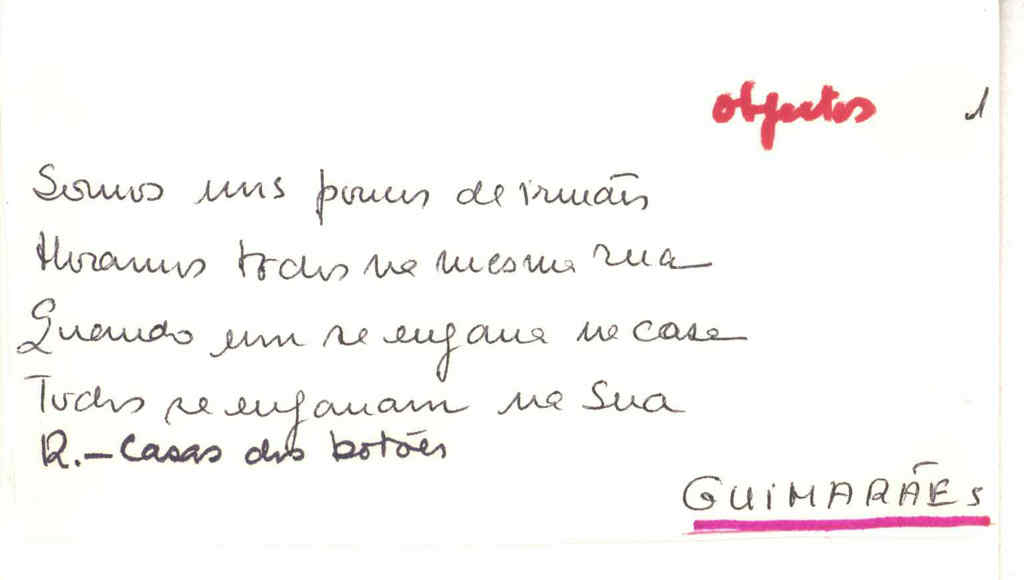 Objectos 1
Somos uns poucos de irmãos
Moramos todos na mesma rua
Quando um se engana na casa
Todos se enganam na sua
R. - Casas dos botões
GUIMARÃES